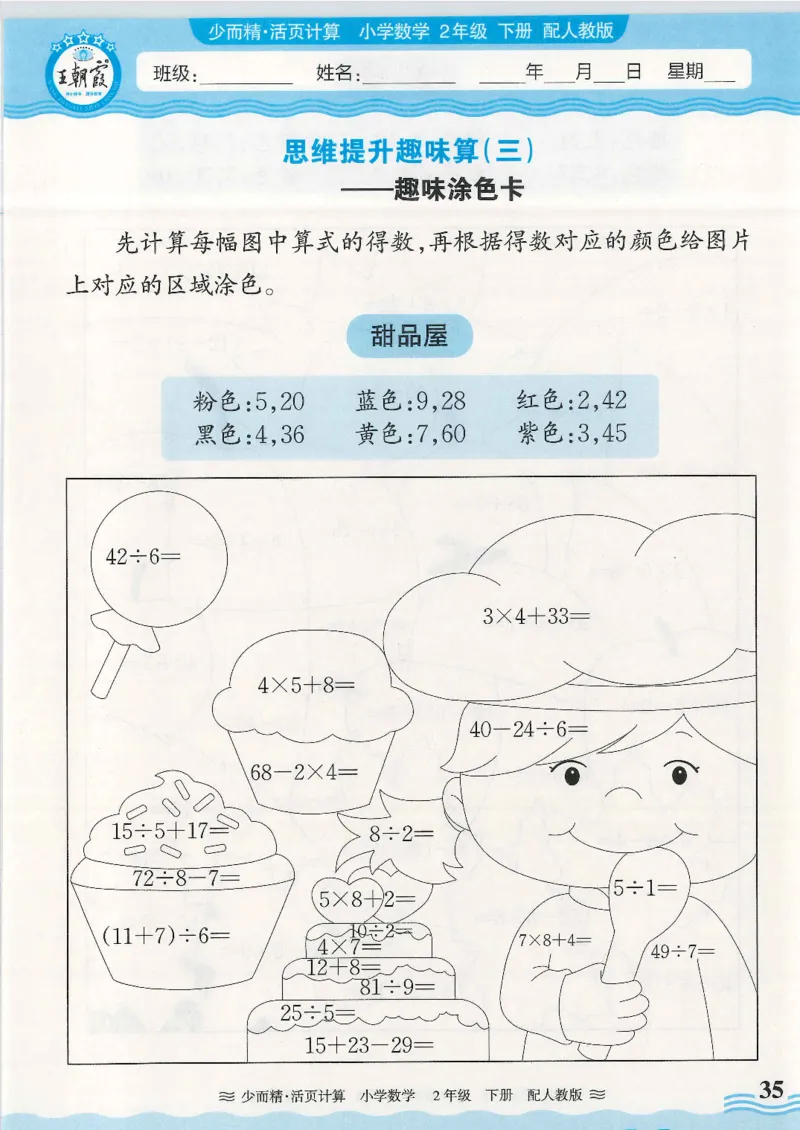 少而精·活页计算 小学数学 2年级 下册 配人教版
王朝霞
班级:________ 姓名:________ ____年___月___日 星期___
思维提升趣味算(三)
——趣味涂色卡
先计算每幅图中算式的得数,再根据得数对应的颜色给图片
上对应的区域涂色。
甜品屋
粉色:5,20 蓝色:9,28 红色:2,42
黑色:4,36 黄色:7,60 紫色:3,45
42÷6=
3×4+33=
4×5+8=
40-24÷6=
68-2×4=
15÷5+17=
8÷2=
72÷8-7=
5×8+2=
5÷1=
(11+7)÷6=
10÷2=
4×7=
7×8+4=
49÷7=
12+8=
81÷9=
25÷5=
15+23-29=
少而精·活页计算 小学数学 2年级 下册 配人教版
35